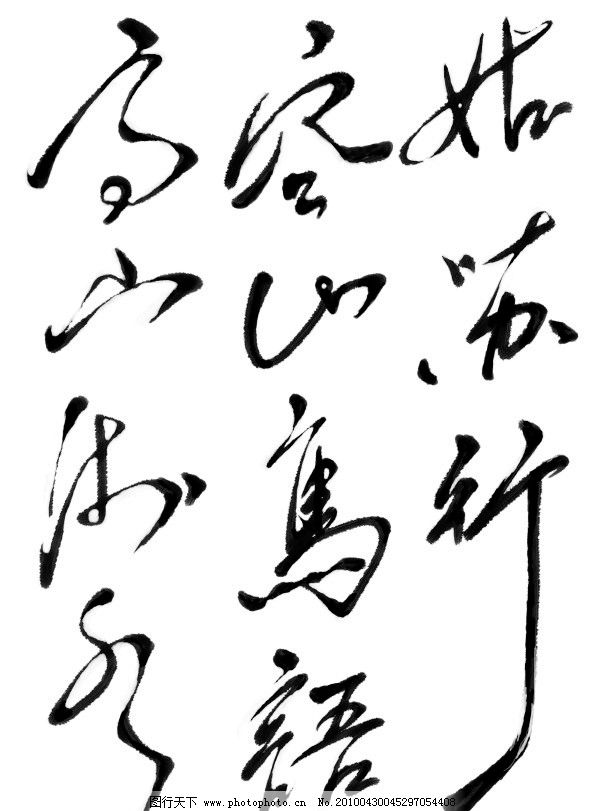 姑苏行
空山鸟語
高山流水
图行天下 www.photophoto.cn No.20100430045297054408